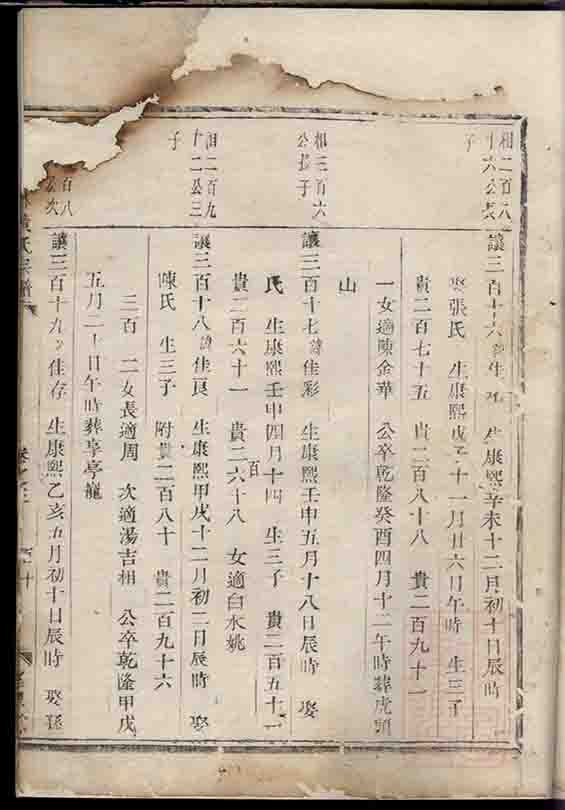 相二百八
十六公長
子
讓三百十六 佳 生康熙辛未十二月初十日辰時
娶張氏 生康熙戊子十一月廿六日午時 生三子
貴二百七十五 貴二百八十八 貴二百九十一
一女適陳金華 公卒乾隆癸酉四月十二午時葬虎頭
山
相三百六
公長子
讓三百十七 諱佳彩 生康熙壬申五月十八日辰時 娶
氏 生康熙壬申四月十四 生三子 貴二百五十一
貴二百六十一 貴二百六十八 女適白水姚
相二百九
十二公三
子
讓三百十八 諱佳良 生康熙甲戌十二月初二日辰時 娶
陳氏 生三子 附貴二百八十 貴二百九十六
三百 二女長適周 次適湯吉相 公卒乾隆甲戌
五月二十日午時葬享亭龍
百八
公次
讓三百十九 佳存 生康熙乙亥五月初十日辰時 娶孫
黃氏宗譜